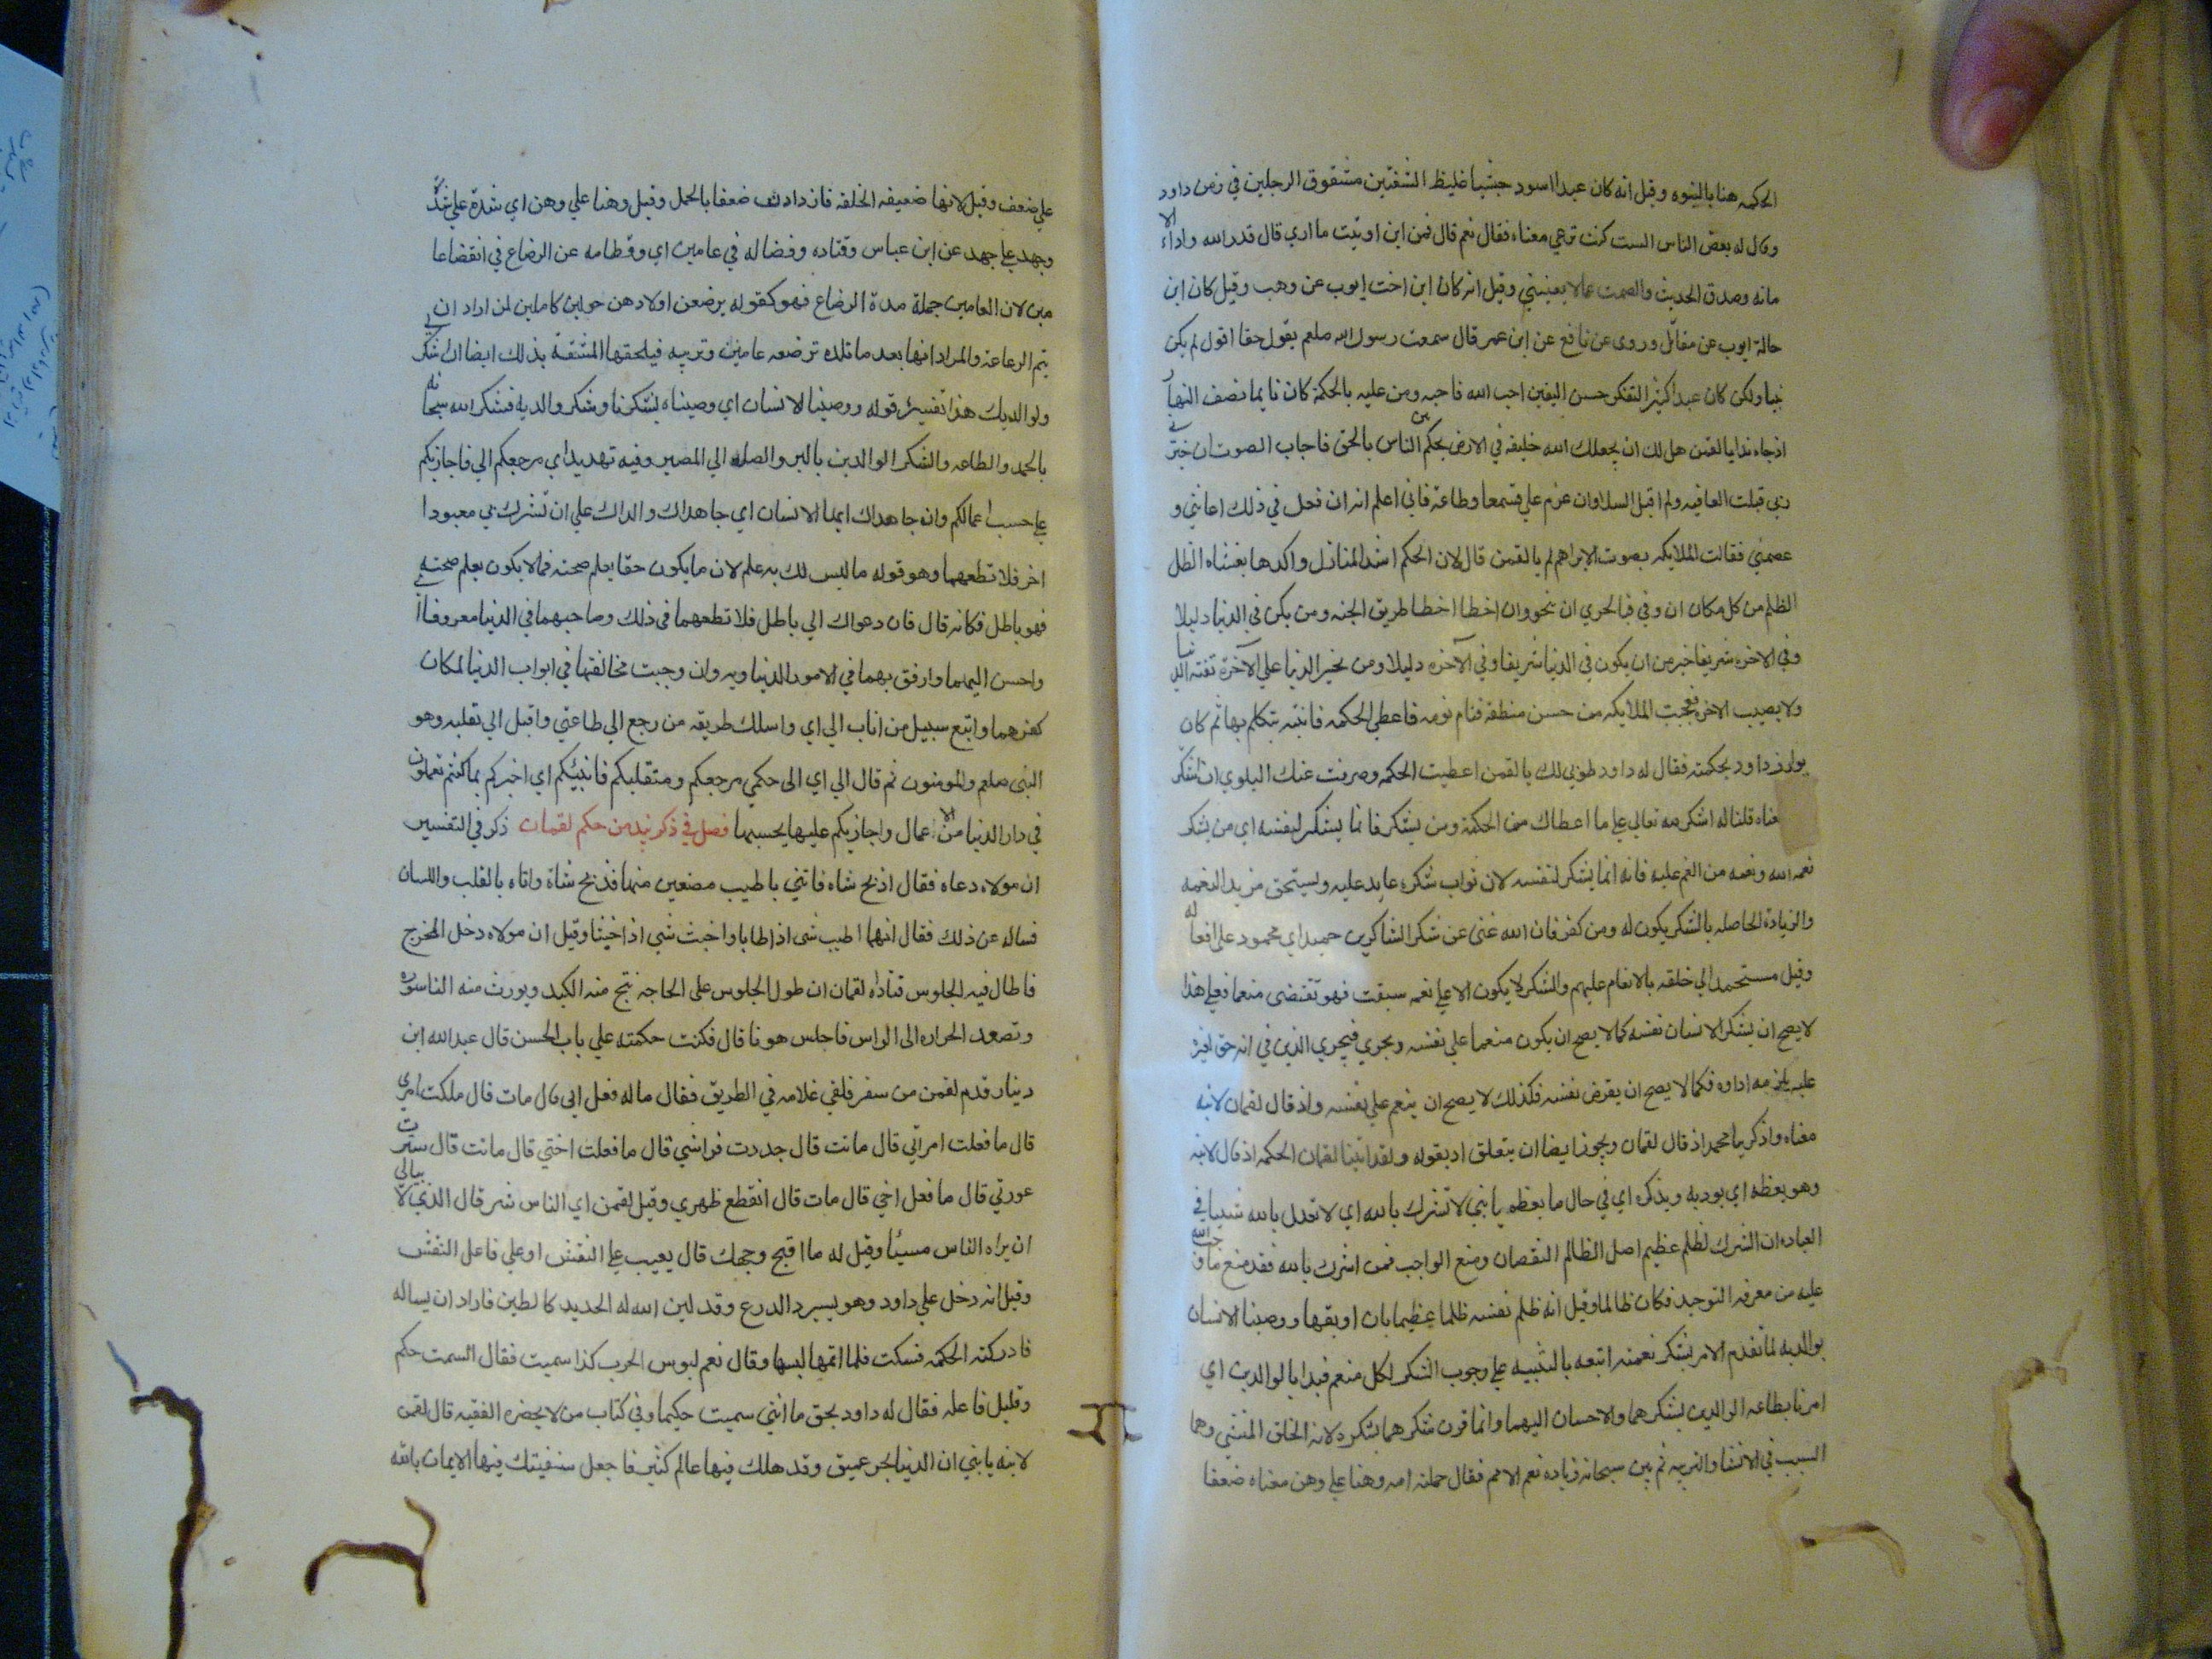 الحكمه هنا بالنبوه وقيل انه كان عبدا اسود حبشيا غليظ الشفتين مشقوق الرجلين في زمن داود
وقال له بعض الناس الست كنت ترعي معناه فقال نعم قال فمن اين اوتيت ما اري قال قدر الله واداء الا
مانه وصدق الحديث والصمت عما لا يعنيني وقيل انه كان ابن اخت ايوب عن وهب وقيل كان ابن
خالة ايوب عن مقاتل وروي عن نافع عن ابن عمر قال سمعت رسول الله صلعم يقول حقا اقول لم يكن
نبيا ولكن كان عبدا كثير التفكر حسن اليقين احب الله فاحبه ومن عليه بالحكمة كان نايما نصف النهار
اذ جاه ندا يا لقمن هل لك ان يجعلك الله خليفه في الارض تحكم بين الناس بالحق فاجاب الصوت ان خيرني
ربي قبلت العافيه ولم اقبل البلا وان عزم علي فسمعا وطاعة فاني اعلم انه ان فعل في ذلك اعانني و
عصمني فقالت الملايكه بصوت لا يراهم لم يا لقمن قال لان الحكم اشد المنازل واكدها يغشاه الظل
الظلم من كل مكان ان وفي فبالحري ان ينجو وان اخطا اخطا طريق الجنه ومن يكن في الدنيا دليلا
وفي الاخره شريفا خير من ان يكون في الدنيا شريفا وفي الآخره دليلا ومن يخير الدنيا علي الآخرة تفته الدنيا
ولا يصيب الاخره فعجبت الملايكه من حسن منطقه فنام نومه فاعطي الحكمه فانتبه يتكلم بها ثم كان
يوازر داود بحكمته فقال له داود طوبي لك يا لقمن اعطيت الحكمه وصرفت عنك البلوي ان اشكر
معناه قلنا له اشكر لله تعالي علي ما اعطاك من الحكمة ومن يشكر فانما يشكر لنفسه اي من يشكر
نعمه الله ونعمه من انعم عليه فانه انما يشكر لنفسه لان ثواب شكره عايد عليه ويستحق مزيد النعمه
والزيادة الحاصله بالشكر يكون له ومن كفر فان الله غني عن شكر الشاكرين حميد اي محمود علي افعاله
وقيل مستحمد الي خلقه بالانعام عليهم والشكر لا يكون الا علي نعمه سبقت فهو يقتضي منعما فعلي هذا
لا يصح ان يشكر الانسان نفسه كما لا يصح ان يكون منعما علي نفسه ويجري فيجري الدين في انه حق لغيره
عليه يلزمه اداوه فكما لا يصح ان يقرض نفسه فكذلك لا يصح ان ينعم علي نفسه واذ قال لقمان لابنه
معناه واذكر يا محمد اذ قال لقمان ويجوز ايضا ان يتعلق اذ بقوله ولقد اتينا لقمان الحكمه اذ قال لابنه
وهو يعظه اي يودبه ويذكره اي في حال ما يعظه يا بني لا تشرك بالله اي لا تعدل بالله شييا في
العباده ان الشرك لظلم عظيم اصل الظالم النقصان ومنع الواجب فمن اشرك بالله فقد منع ما وجب لله
عليه من معرفه التوحيد فكان ظالما وقيل انه ظلم نفسه ظلما عظيما بان اوبقها ووصينا الانسان
بوالديه لما تقدم الامر بشكر نعمته اتبعه بالتنبيه علي وجوب الشكر لكل منعم فبدا بالوالدين اي
امرنا بطاعه الوالدين بشكرهما والاحسان اليهما وانما قرن شكرهما بشكره لانه الخالق المنشي وهما
السبب في الانشا والتربيه ثم بين سبحانه زياده نعم الام فقال حملته امه وهنا علي وهن معناه ضعفا
علي ضعف وقيل لانها ضعيفه الخلقه فازدادت ضعفا بالحمل وقيل وهنا علي وهن اي شدة علي شدة
وجهد علي جهد عن ابن عباس وقتاده وفصاله في عامين اي وفطامه عن الرضاع في انقضا عا
مين لان العامين جملة مدة الرضاع فهو كقوله يرضعن اولادهن حولين كاملين لمن اراد ان
يتم الرضاعة والمراد انها بعد ما تلده ترضعه عامين وتربيه فيلحقها المشقة بذلك ايضا ان اشكر لي
ولوالديك هذا تفسير قوله ووصينا الانسان اي وصيناه بشكرنا وشكر والديه فشكر الله سبحانه
بالحمد والطاعه والشكر الوالدين بالبر والصله الي المصير وفيه تهديد اي مرجعكم الي فاجازيكم
علي حسب اعمالكم وان جاهداك ايها الانسان اي جاهداك والداك علي ان تشرك بي معبودا
اخر فلا تطعهما وهو قوله ما ليس لك به علم لان ما يكون حقا يعلم صحته فما لا يكون يعلم صحته
فهو باطل فكانه قال فان دعواك الي باطل فلا تطعهما في ذلك وصاحبهما في الدنيا معروفا اي
واحسن اليهما وارفق بهما في الامور الدنياويه وان وجبت مخالفتها في ابواب الدنيا لمكان
كفرهما واتبع سبيل من اناب الي اي واسلك طريقه من رجع الي طاعتي واقبل الي بقلبه وهو
النبي صلعم والمومنون ثم قال الي اي الي حكمي مرجعكم ومتقلبكم فانبئكم اي اخبركم بما كنتم تعملون
في دار الدنيا من الاعمال واجازيكم عليها بحسبها فصل في ذكر نبذ من حكم لقمان ذكر في التفسير
ان مولاه دعاه فقال اذبح شاه فاتني باطيب مضغين منها فذبح شاة واتاه بالقلب واللسان
فساله عن ذلك فقال انهما اطيب شي اذا طابا واخبث شي اذا خبثا وقيل ان مولاه دخل المخرج
فاطال فيه الجلوس فناداه لقمان ان طول الجلوس علي الحاجه يتجع منه الكبد ويورث منه الناسوره
وتصعد الحراره الي الراس فاجلس هونا قال فكتبت حكمته علي باب الحسن قال عبد الله ابن
دينار قدم لقمن من سفر فلقي غلامه في الطريق فقال ما له فعل ابي قال مات قال ملكت امري
قال ما فعلت امراتي قال ماتت قال جددت فراشي قال ما فعلت اختي قال ماتت قال سترت
عورتي قال ما فعل اخي قال مات قال انقطع ظهري وقيل لقمن اي الناس شر قال الذي لا يبالي
ان يراه الناس مسيئا وقيل له ما اقبح وجهك قال يعيب علي النقش او علي فاعل النقش
وقيل انه دخل علي داود وهو يسرد الدرع وقد لين الله له الحديد كالطين فاراد ان يساله
فادركته الحكمه فسكت فلما اتمها لبسها وقال نعم لبوس الحرب كذا سميت فقال الصمت حكم
وقليل فاعله فقال له داود بحق ما انني سميت حكيما وفي كتاب من لا يحضره الفقيه قال لقمن
لابنه يا بني ان الدنيا بحر عميق وقد هلك فيها عالم كثير فاجعل سفينتك فيها الايمان بالله